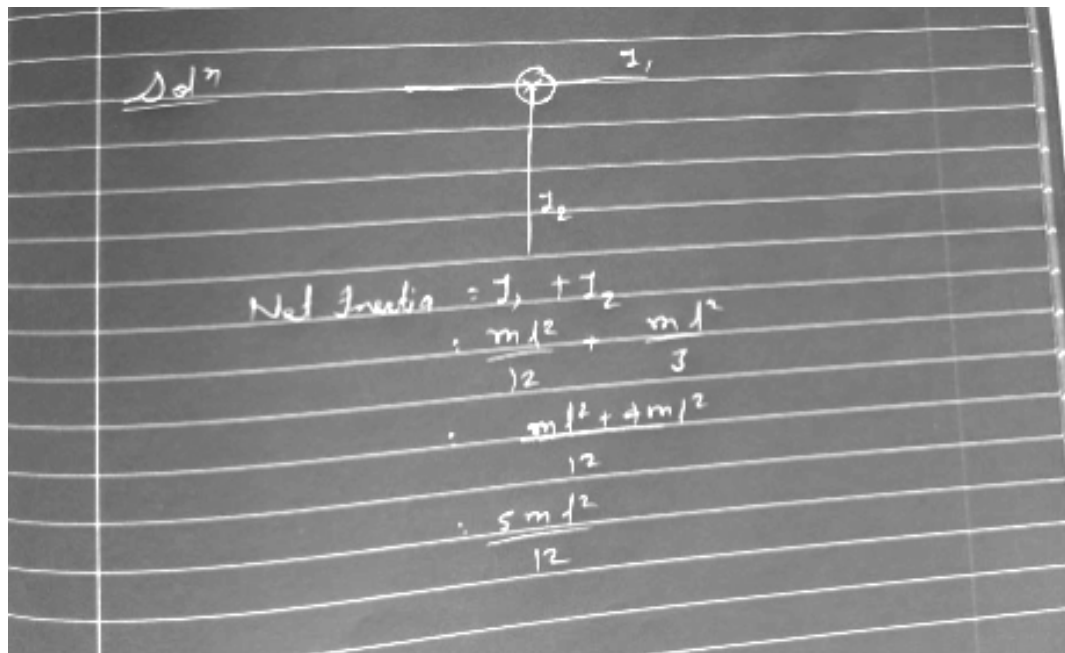 Solⁿ
I₁
I₂
Net Inertia = I₁ + I₂
= ml²/12 + ml²/3
= ml² + 4ml²/12
= 5ml²/12